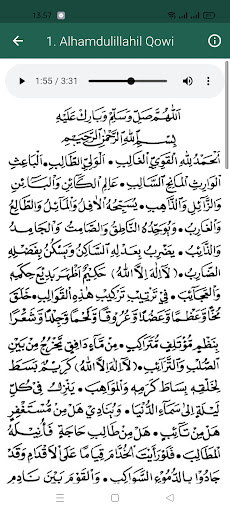 13.57
1. Alhamdulillahil Qowi
1:55 / 3:31
اَللّٰهُمَّ صَلِّ وَسَلِّمْ وَبَارِكْ عَلَيْهِ
بِسْمِ اللّٰهِ الرَّحْمٰنِ الرَّحِيْمِ
اَلْحَمْدُ لِلّٰهِ الْقَوِيِّ الْغَالِبِ۰ اَلْوَلِيِّ الطَّالِبِ۰ اَلْبَاعِثِ
الْوَارِثِ الْمَانِحِ السَّالِبِ۰ عَالِمِ الْكَائِنِ وَالْبَائِنِ
وَالزَّائِلِ وَالذَّاهِبِ۰ يُسَبِّحُهُ الْاٰفِلُ وَالْمَائِلُ وَالطَّالِعُ
وَالْغَارِبُ۰ وَيُوَحِّدُهُ النَّاطِقُ وَالصَّامِتُ وَالْجَامِدُ
وَالذَّائِبُ۰ يَضْرِبُ بِعَدْلِهِ السَّاكِنُ وَيَسْكُنُ بِفَضْلِهِ
الضَّارِبُ۰ (لَاۤ اِلٰهَ اِلَّا اللّٰهُ) حَكِيْمٌ اَظْهَرَ بَدِيْعَ حِكَمِهِ
وَالْعَجَائِبَ۰ فِيْ تَرْتِيْبِ تَرْكِيْبِ هٰذِهِ الْقَوَالِبِ۰ خَلَقَ
مُخًّا وَعَظْمًا وَعَضُدًا وَعُرُوْقًا وَلَحْمًا وَجِلْدًا وَشَعْرًا
بِنَظْمٍ مُؤْتَلِفٍ مُتَرَاكِبٍ۰ مِنْ مَاءٍ دَافِقٍ يَخْرُجُ مِنْ بَيْنِ
الصُّلْبِ وَالتَّرَائِبِ۰ (لَاۤ اِلٰهَ اِلَّا اللّٰهُ) كَرِيْمٌ بَسَطَ
لِخَلْقِهِ بِسَاطَ كَرَمِهِ وَالْمَوَاهِبِ۰ يَنْزِلُ فِيْ كُلِّ
لَيْلَةٍ اِلَى سَمَاءِ الدُّنْيَا۰ وَيُنَادِيْ هَلْ مِنْ مُسْتَغْفِرٍ
هَلْ مِنْ تَائِبٍ۰ هَلْ مِنْ طَالِبِ حَاجَةٍ فَاُنِيْلَهُ
الْمَطَالِبَ۰ فَلَوْ رَأَيْتَ الْخُدَّامَ قِيَامًا عَلَى الْاَقْدَامِ وَقَدْ
جَادُوْا بِالدُّمُوْعِ السَّوَاكِبِ۰ وَالْقَوْمَ بَيْنَ نَادِمٍ